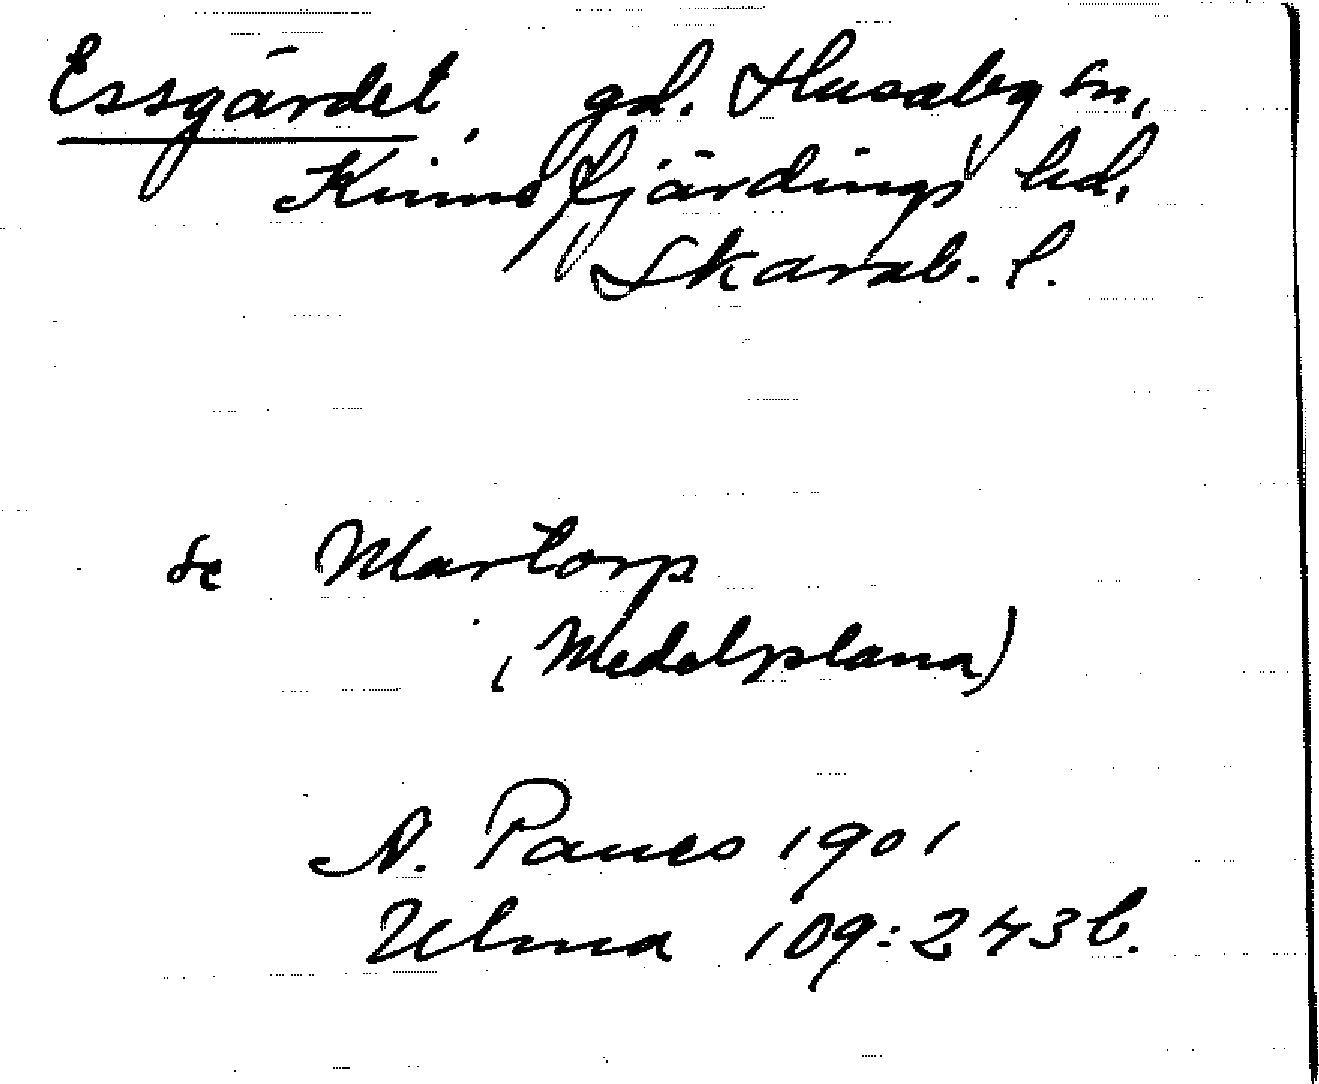 Essgärdet, gd. Husaby sn,
Kinnefjärdings hd.
Skarab. l.
se Martorp
(Medelplana)
N. Panes 1901
Ulma 109:243 b.